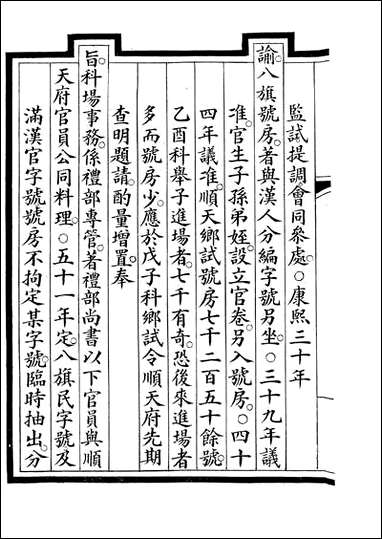 監試提調會同參處○康熙三十年
諭八旗號房著與漢人分編字號另坐○三十九年議
准官生子孫弟姪設立官卷另入號房○四十
四年議准順天鄉試號房七千二百五十餘號
乙酉科舉子進場者七千有奇恐後來進場者
多而號房少應於戊子科鄉試令順天府先期
查明題請酌量增置奉
旨科場事務係禮部專管著禮部尚書以下官員與順
天府官員公同料理○五十一年定八旗民字號及
滿漢官字號號房不拘定某字號臨時抽出分